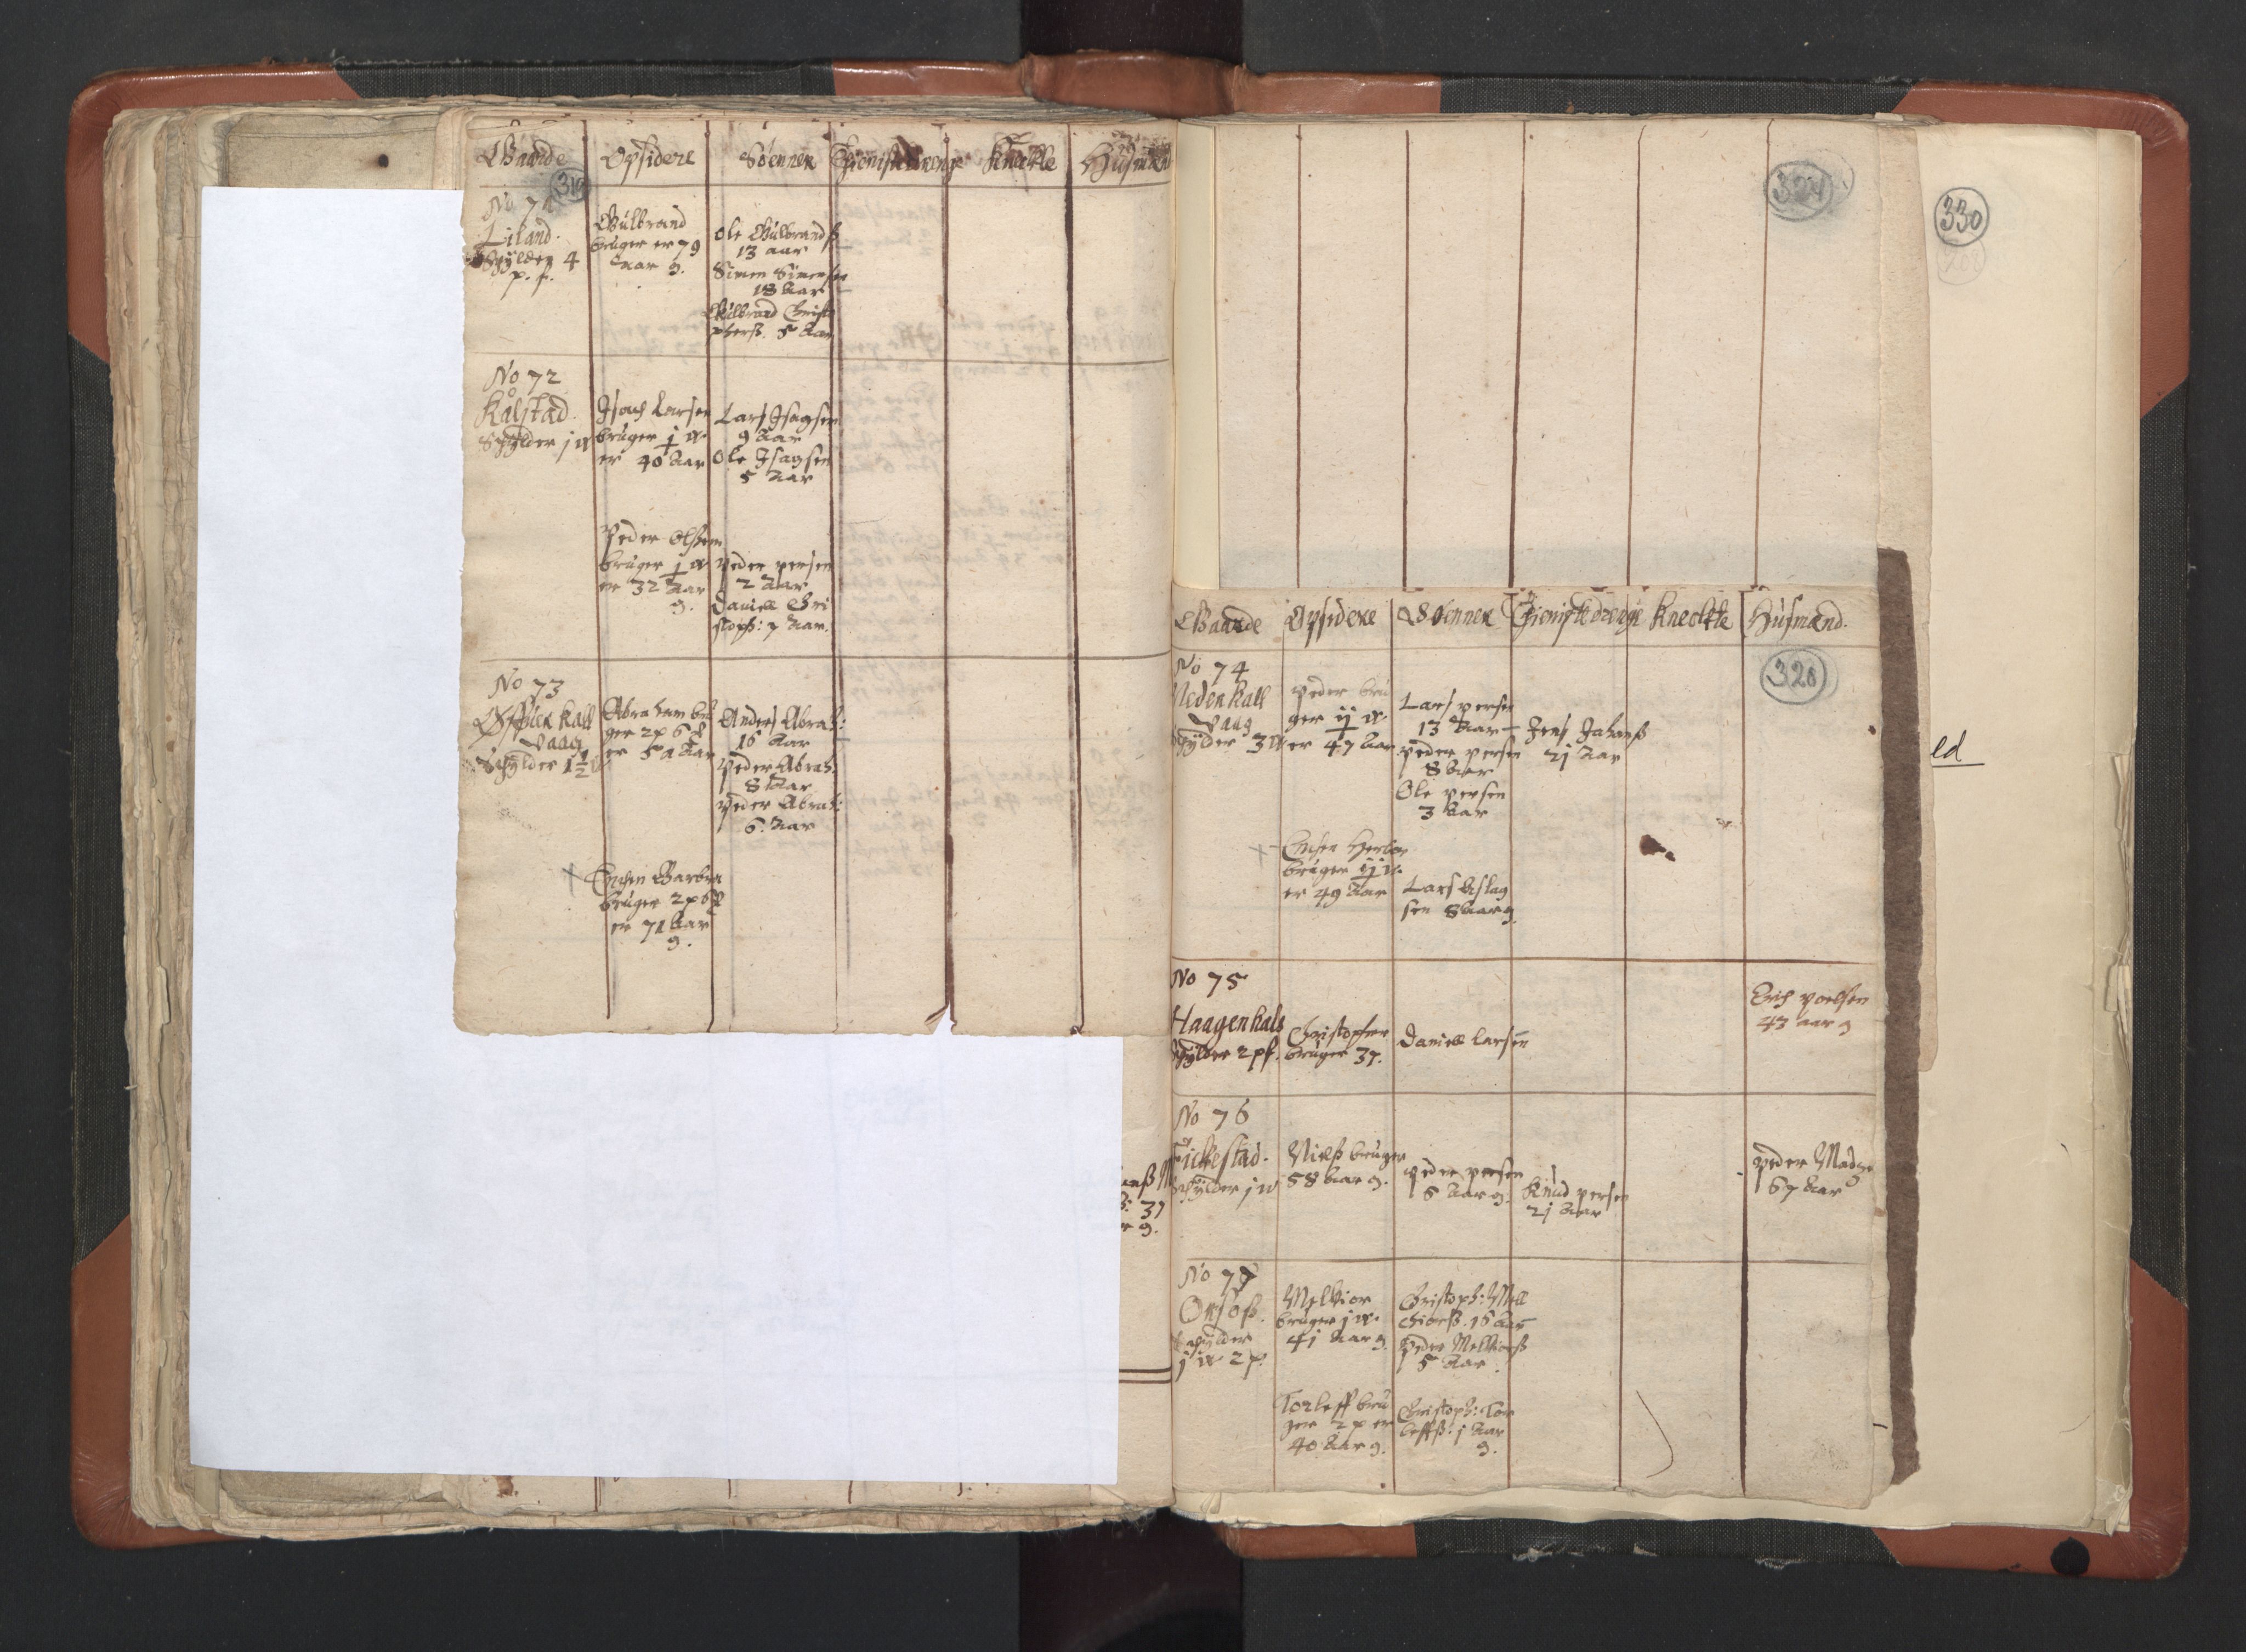 Gaarde Opsidere Sønner Thienistedrenge Knechte Husmænd
319
No 71
Liland.
Schylder 4
p. f.
Gulbrand
bruger er 79
Aar g.
Ole Gulbrandß
13 aar
Simen Simensen
18 Aar
Gulbrand Christo
pherß. 5 Aar
No 72
Kalstad.
Schylder j w
Isach Larsen
bruger j w
er 40 Aar
Lars Isagsen
9 Aar
Ole Isagsen
5 Aar
Peder Olsen
bruger j w
er 32 Aar
g.
Peder persen
2 Aar
Daniell Chri
stoph: 7 Aar.
No 73
Kall
vaag
Schylder 1½ w
Abraham bru
ger 2 p 6
er 51 Aar
Anders Abrah:
16 Aar
Peder Abrah:
8 Aar
Peder Abrah:
6. Aar
Enchen Barbra
bruger 2 p 6
er 71 Aar
g.
37
g.
324
330
ld
Gaarde Opsidere Sønner Thienistedrenge Knechte Husmænd.
320
No 74
Neden Kall
vaag
Schylder 3 w
Peder bru
ger ij w.
er 47 Aar
Lars persen
13 Aar
Peder persen
8 Aar
Ole persen
3 Aar
Jens Johanß
2j Aar
Enchen
bruger ij w.
er 49 Aar
Lars Aslag
sen 8 Aar g.
No 75
Haagenhals
Schylder 2 pf.
Christopher
bruger 37.
Daniell Larsen
Erich poelsen
43 aar g
No 76
Fickestad.
Schylder j w
Nielß bruger
58 Aar g.
Peder persen
6 Aar g.
Knud persen
2j Aar
Peder Madsen
67 Aar
No 77
Schylder
j w 2 p.
Melkior
bruger j w.
4j Aar g.
Christoph: Mell
chiorß. 16 Aar
Peder Melkiorß
5 Aar.
Torleff bru
ger 2 p er
40 Aar g.
Christoph: Tor
leffß: j Aar
g.